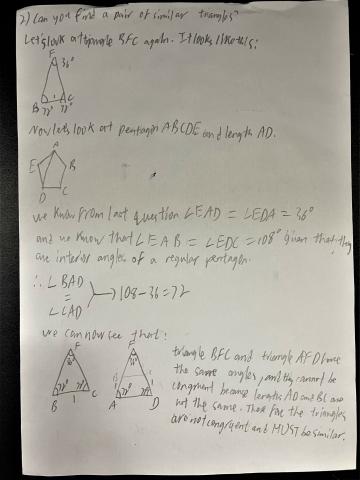 2) Can you find a pair of similar triangles?
Let's look at triangle BFC again. It looks like this:
F
36°
B 1 C
72° 72°
Now lets look at pentagon ABCDE and length AD.
A
E B
D C
we know from last question ∠EAD = ∠EDA = 36°
and we know that ∠EAB = ∠EDC = 108° given that they
are interior angles of a regular pentagon.
∴ ∠BAD
=
∠CAD
108-36=72
we can now see that:
F F
36° 36°
72° 72° 72° 72°
B 1 C A D
triangle BFC and triangle AFD have
the same angles, and they cannot be
congruent because lengths AD and BC are
not the same. There for the triangles
are not congruent and MUST be similar.